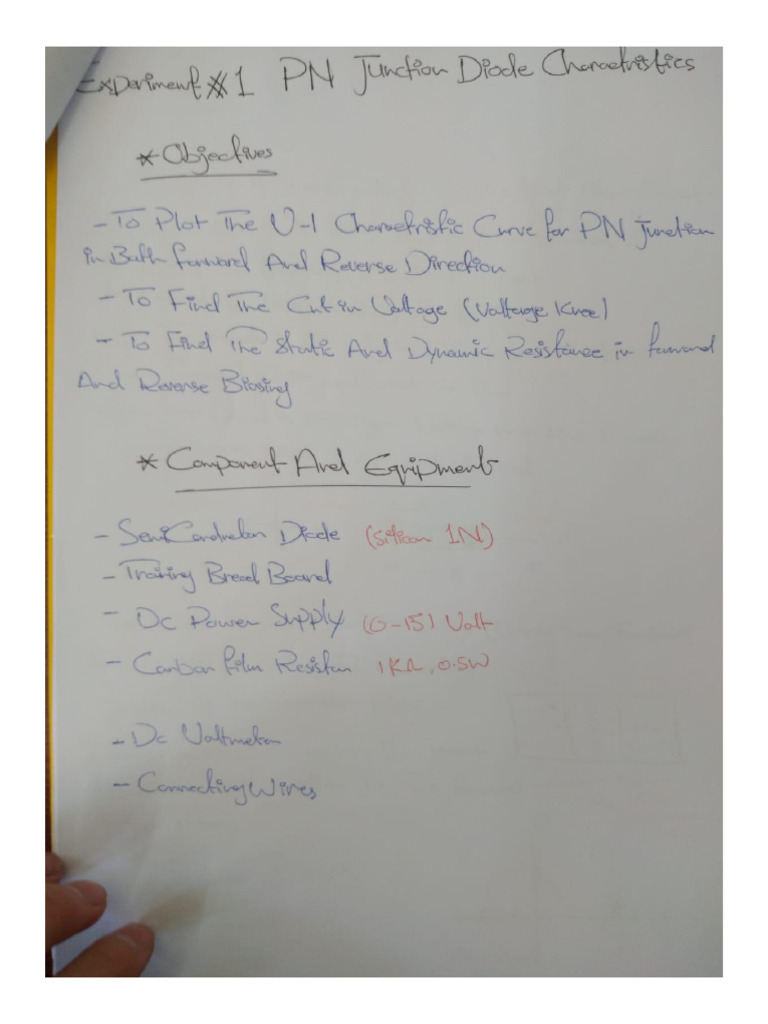 Experiment #1 PN Junction Diode Charactristics
* Objectives
- To Plot The V-I Charactristic Curve for PN Junction
in Both forward And Reverse Direction
- To Find The Cut in Voltage (Voltage Knee)
- To Find The Static And Dynamic Resistance in forward
And Reverse Biasing
* Component And Equipments
- SemiConductor Diode (Silicon 1N)
- Training Bread Board
- Dc Power Supply (0-15) Volt
- Carbon film Resistor 1KΩ, 0.5W
- Dc Voltmeter
- Connecting Wires